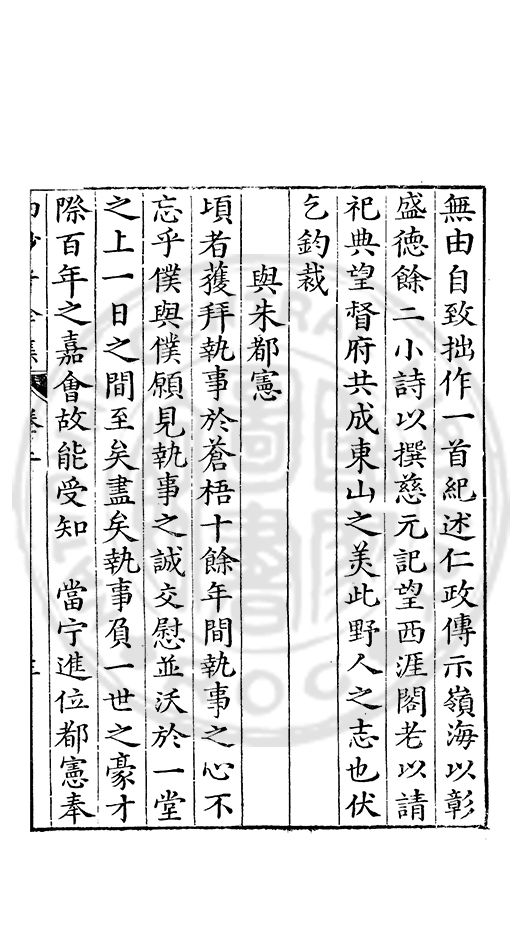 無由自致拙作一首紀述仁政傳示嶺海以彰
盛德餘二小詩以撰慈元記望西涯閣老以請
祀典望督府共成東山之美此野人之志也伏
乞鈞裁
與朱都憲
頃者獲拜執事於蒼梧十餘年間執事之心不
忘乎僕與僕願見執事之誠交慰並沃於一堂
之上一日之間至矣盡矣執事負一世之豪才
際百年之嘉會故能受知　當宁進位都憲奉